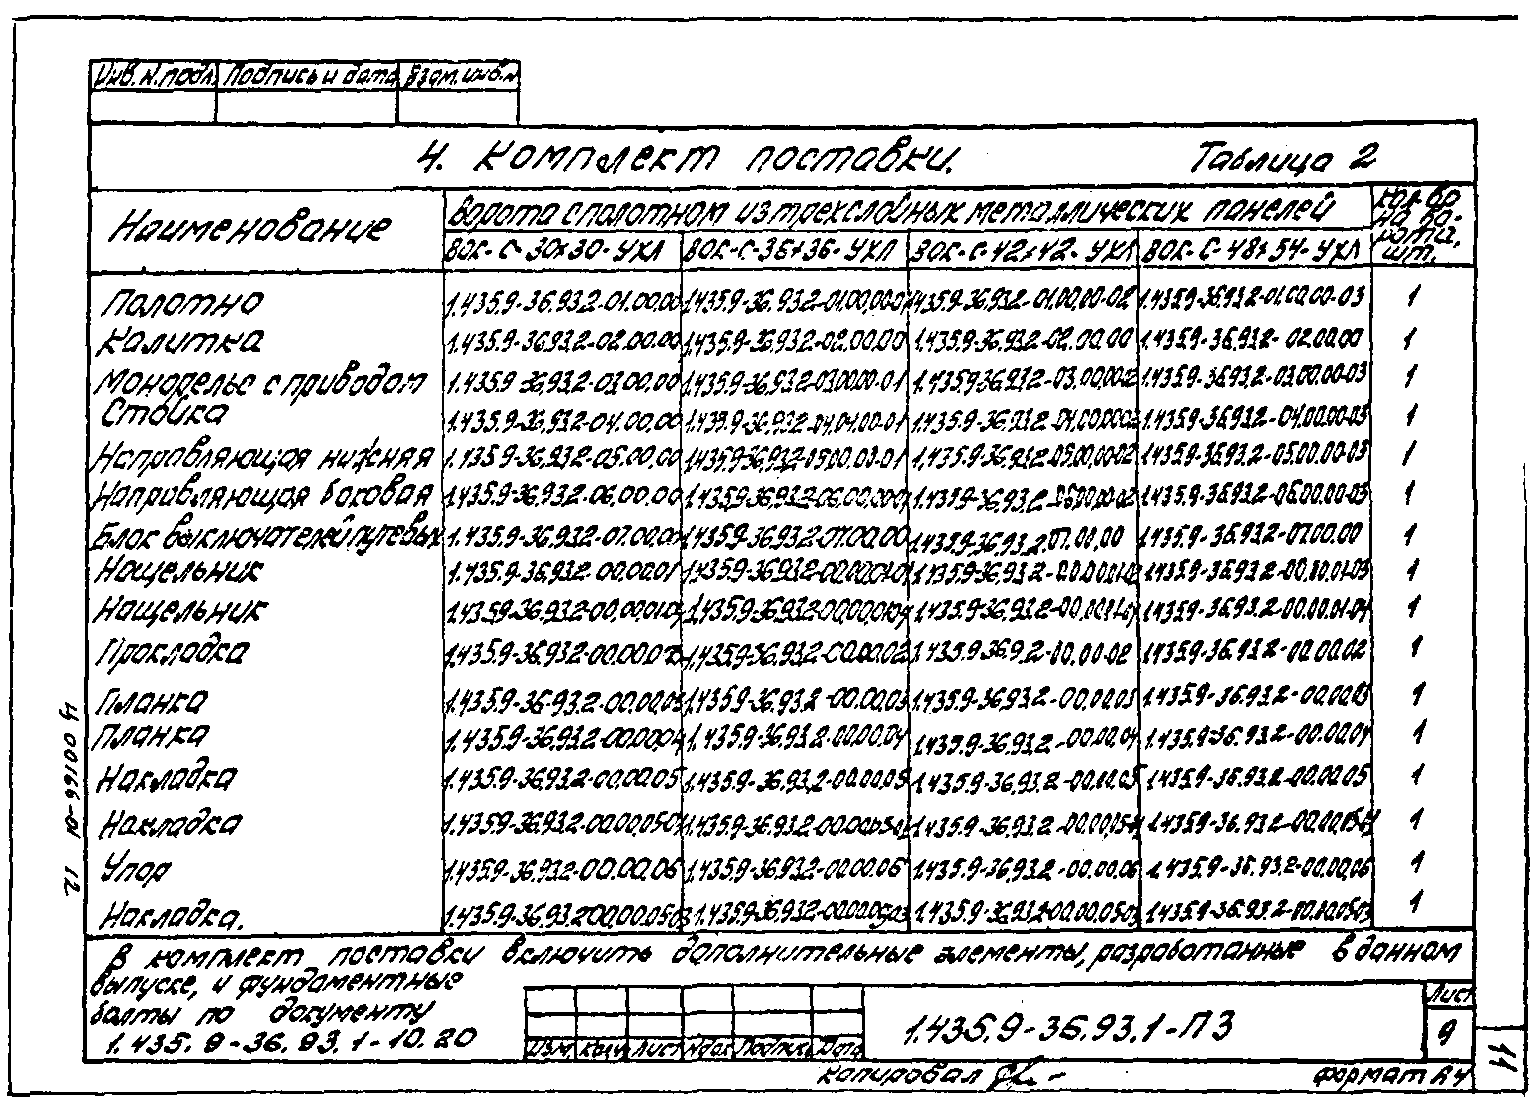 Инв. N. подл. Подпись и дата Взам. инв. N
4. Комплект поставки. Таблица 2
Наименование
Ворота с полотном из трехслойных металлических панелей
Кол-во на во-рота, шт.
ВОК-С-30х30-УХЛ ВОК-С-36х36-УХЛ ВОК-С-42х42-УХЛ ВОК-С-48х54-УХЛ
Полотно 1.435.9-36.93.2-01.00.00 1.435.9-36.93.2-01.00.00-01 1.435.9-36.93.2-01.00.00-02 1.435.9-36.93.2-01.00.00-03 1
Калитка 1.435.9-36.93.2-02.00.00 1.435.9-36.93.2-02.00.00 1.435.9-36.93.2-02.00.00 1.435.9-36.93.2-02.00.00 1
Монорельс с приводом 1.435.9-36.93.2-03.00.00 1.435.9-36.93.2-03.00.00-01 1.435.9-36.93.2-03.00.00-02 1.435.9-36.93.2-03.00.00-03 1
Стойка 1.435.9-36.93.2-04.00.00 1.435.9-36.93.2-04.04.00-01 1.435.9-36.93.2-04.00.00-02 1.435.9-36.93.2-04.00.00-03 1
Направляющая нижняя 1.435.9-36.93.2-05.00.00 1.435.9-36.93.2-05.00.00-01 1.435.9-36.93.2-05.00.00-02 1.435.9-36.93.2-05.00.00-03 1
Направляющая боковая 1.435.9-36.93.2-06.00.00 1.435.9-36.93.2-06.00.00-01 1.435.9-36.93.2-06.00.00-02 1.435.9-36.93.2-06.00.00-03 1
Блок выключателей путевых 1.435.9-36.93.2-07.00.00 1.435.9-36.93.2-07.00.00 1.435.9-36.93.2.07.00.00 1.435.9-36.93.2-07.00.00 1
Нащельник 1.435.9-36.93.2-00.00.01 1.435.9-36.93.2-00.00.01-01 1.435.9-36.93.2-00.00.01-02 1.435.9-36.93.2-00.00.01-03 1
Нащельник 1.435.9-36.93.2-00.00.01-04 1.435.9-36.93.2-00.00.01-04 1.435.9-36.93.2-00.00.01-04 1.435.9-36.93.2-00.00.01-04 1
Прокладка 1.435.9-36.93.2-00.00.02 1.435.9-36.93.2-00.00.02 1.435.9-36.9.2-00.00-02 1.435.9-36.93.2-00.00.02 1
Планка 1.435.9-36-93.2-00.00.03 1.435.9-36.93.2-00.00.03 1.435.9-36.93.2-00.00.03 1.435.9-36.93.2-00.00.03 1
Планка 1.435.9-36.93.2-00.00.04 1.435.9-36.93.2-00.00.04 1.435.9-36.93.2-00.00.04 1.435.9-36.93.2-00.00.04 1
Накладка 1.435.9-36.93.2-00.00.05 1.435.9-36.93.2-00.00.05 1.435.9-36.93.2-00.00.05 1.435.9-36.93.2-00.00.05 1
Накладка 1
Упор 1.435.9-36.93.2-00.00.06 1.435.9-36.93.2-00.00.06 1.435.9-36.93.2-00.00.06 1.435.9-36.93.2-00.00.06 1
Накладка. 1.435.9-36.93.2-00.00.05-03 1.435.9-36.93.2-00.00.05-03 1.435.9-36.93.2-00.00.05-03 1.435.9-36.93.2-00.00.05-03 1
В комплект поставки включить дополнительные элементы, разработанные в данном
выпуске, и фундаментные
болты по документу
1.435.9-36.93.1-10.20
Изм. Кол.уч Лист Nдок Подпис Дата
1.435.9-36.93.1-ПЗ
Лист
9
Копировал
Формат А4
11
12 10-99100 4